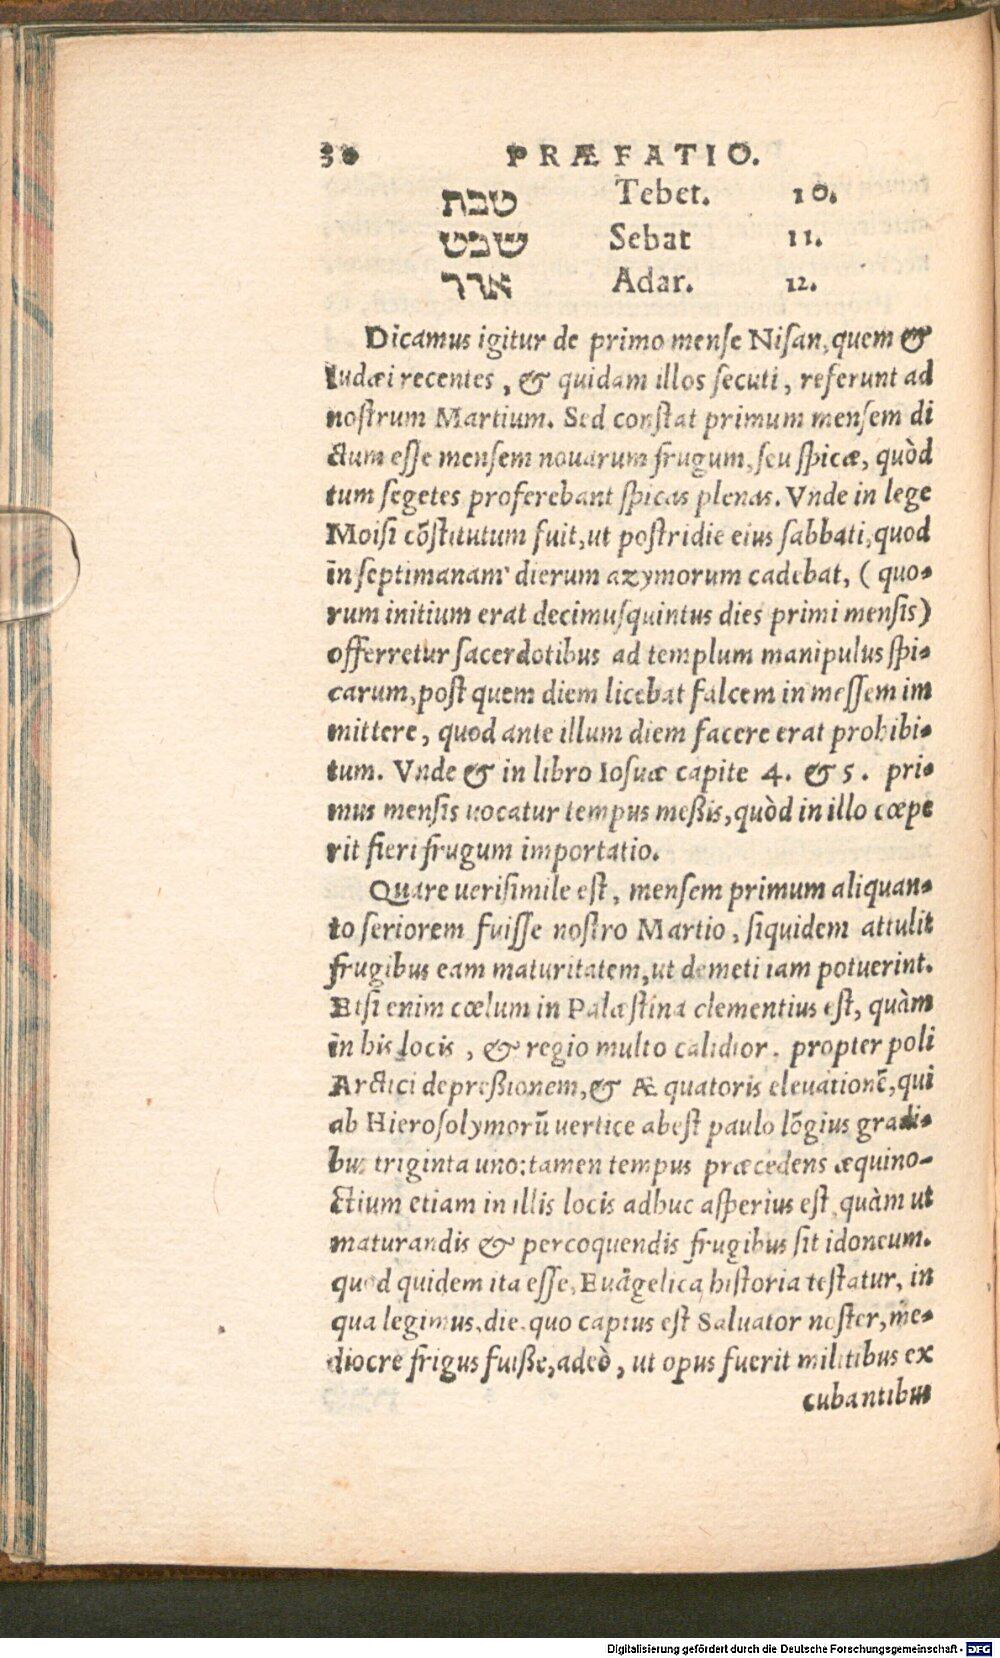 30 PRÆFATIO.
טבת Tebet. 10.
שבט Sebat 11.
אדר Adar. 12.
Dicamus igitur de primo mense Nisan, quem &
Iudæi recentes, & quidam illos secuti, referunt ad
nostrum Martium. Sed constat primum mensem di
ctum esse mensem nouarum frugum, seu spicæ, quòd
tum segetes proferebant spicas plenas. Vnde in lege
Moisi cõstitutum fuit, ut postridie eius sabbati, quod
in septimanam dierum azymorum cadebat, (quo-
rum initium erat decimusquintus dies primi mensis)
offerretur sacerdotibus ad templum manipulus spi-
carum, post quem diem licebat falcem in messem im
mittere, quod ante illum diem facere erat prohibi-
tum. Vnde & in libro Iosuæ capite 4. & 5. pri-
mus mensis uocatur tempus meßis, quòd in illo cœpe
rit fieri frugum importatio.
Quare uerisimile est, mensem primum aliquan-
to seriorem fuisse nostro Martio, siquidem attulit
frugibus eam maturitatem, ut demeti iam potuerint.
Etsi enim cœlum in Palæstina clementius est, quàm
in his locis, & regio multo calidior. propter poli
Arctici depreßionem, & Æquatoris eleuationẽ, qui
ab Hierosolymorũ uertice abest paulo lõgius gradi-
bus triginta uno: tamen tempus præcedens æquino-
ctium etiam in illis locis adhuc asperius est, quàm ut
maturandis & percoquendis frugibus sit idoneum.
quod quidem ita esse, Euãgelica historia testatur, in
qua legimus, die quo captus est Saluator noster, me-
diocre frigus fuiße, adeò, ut opus fuerit militibus ex
cubantibus
Digitalisierung gefördert durch die Deutsche Forschungsgemeinschaft - DFG